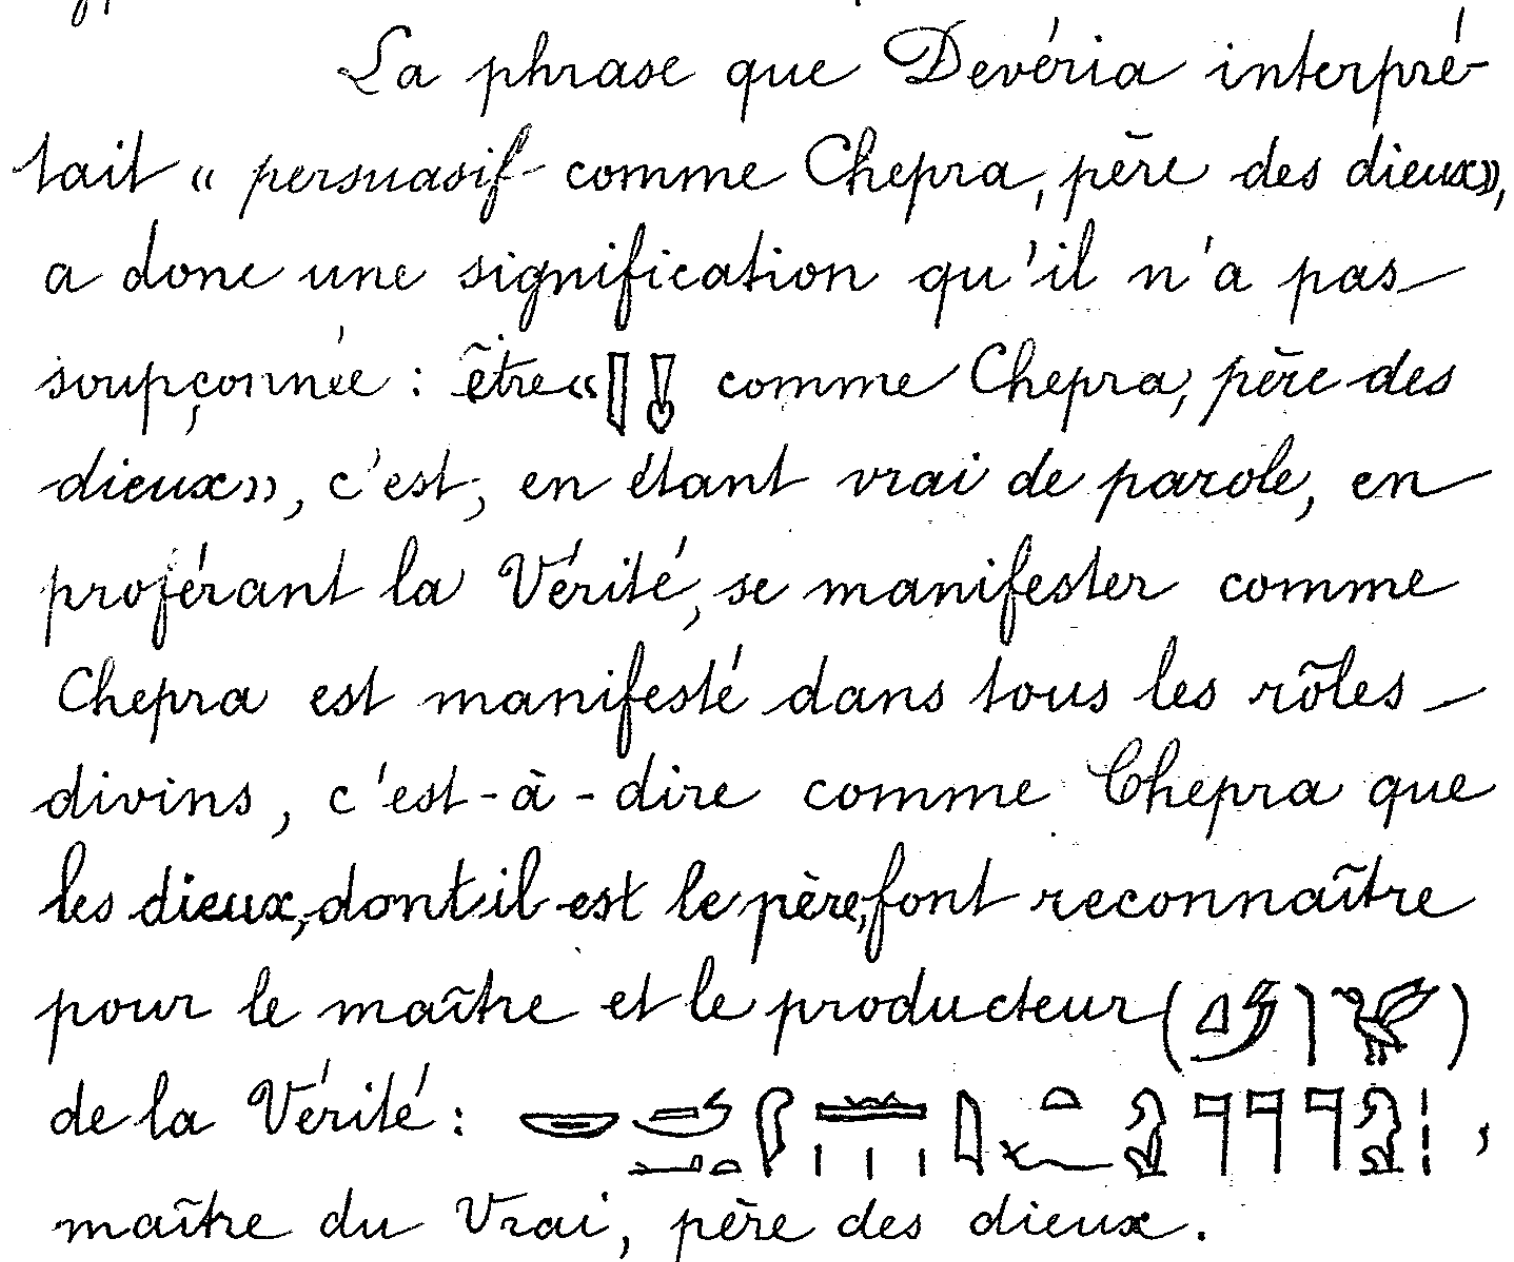 La phrase que Devéria interpré-
tait « persuasif comme Chepra, père des dieux »,
a donc une signification qu'il n'a pas
soupçonnée : être « comme Chepra, père des
dieux », c'est, en étant vrai de parole, en
proférant la Vérité, se manifester comme
Chepra est manifesté dans tous les rôles
divins, c'est-à-dire comme Chepra que
les dieux, dont il est le père, font reconnaître
pour le maître et le producteur ( )
de la Vérité : ,
maître du Vrai, père des dieux.